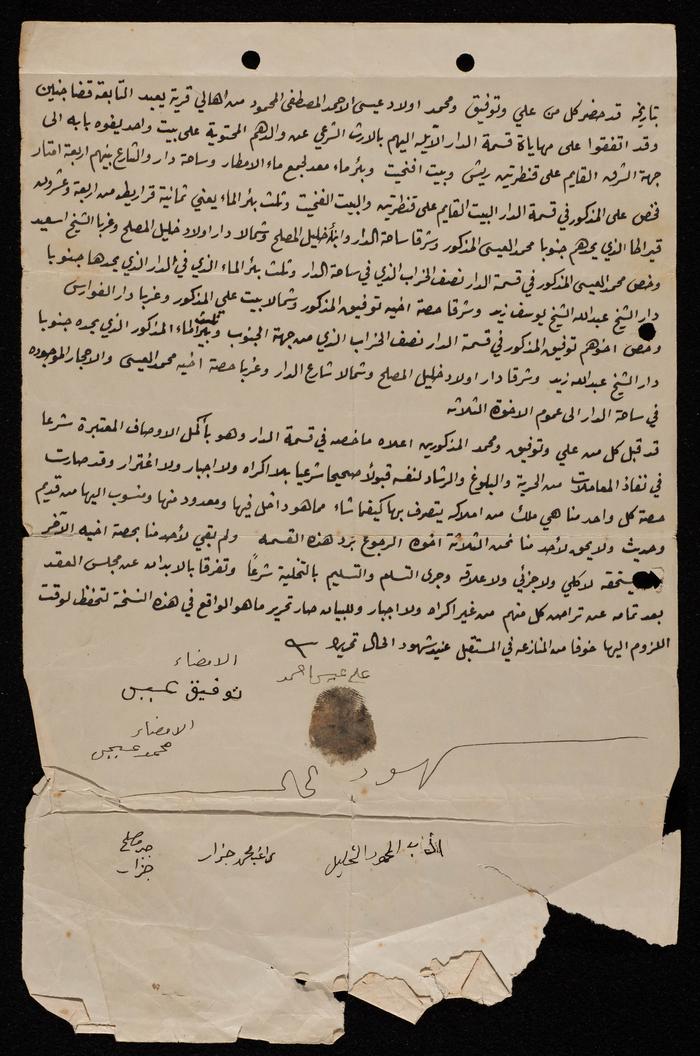 بتاريخه قد حضر كل من علي وتوفيق ومحمد اولاد عيسى الاحمد المصطفى المحمود من اهالي قرية يعبد التابعة قضا جنين
وقد اتفقوا على مهاياة قسمة الدار الآيله اليهم بالارث الشرعي عن والدهم المحتوية على بيت واحد يفوه بابه الى
جهة الشرق القايم على قنطرتين ريش وبيت افخيت وبئر ماء معد لجمع ماء الامطار وساحة دار والشارع بينهم اربعة امتار
فخص علي المذكور في قسمة الدار البيت القايم على قنطرتين والبيت الفخيت وثلث بئر الماء يعني ثمانية قراريط من اربعة وعشرون
قيراطا الذي يحدهم جنوبا محمد العيسى المذكور وشرقا ساحة الدار وابنأ خليل المصلح وشمالا دار اولاد خليل المصلح وغربا الشيخ اسعيد
وخص محمد العيسى المذكور في قسمة الدار نصف الخراب الذي في ساحة الدار وثلث بئر الماء الذي في الدار الذي يحدها جنوبا
دار الشيخ عبدالله الشيخ يوسف زيد وشرقا حصة اخيه توفيق المذكور وشمالا بيت علي المذكور وغربا دار الفوارس
وخص اخوهم توفيق المذكور في قسمة الدار نصف الخراب الذي من جهة الجنوب وثلث بئر الماء المذكور الذي يحده جنوبا
دار الشيخ عبدالله زيد وشرقا دار اولاد خليل المصلح وشمالا شارع الدار وغربا حصة اخيه محمد العيسى والاحجار الموجوده
في ساحة الدار الى عموم الاخوة الثلاثه
قد قبل كل من علي وتوفيق ومحمد المذكورين اعلاه ما خصه في قسمة الدار وهو بأكمل الاوصاف المعتبرة شرعا
في نفاذ المعاملات من الحرية والبلوغ والرشاد لنفسه قبولاً صحيحا شرعيا بلا اكراه ولا اجبار ولا اغترار وقد صارت
حصة كل واحد منا هي ملك من املاكه يتصرف بها كيفما شاء مما هو داخل فيها ومعدود منها ومنسوب اليها من قديم
وحديث ولا يحق لأحد منا نحن الثلاثة اخوه الرجوع برد هذه القسمه ولم بقي لأحد منا بحصة اخيه الآخر
يستحقه لا كلي ولا جزئي ولا علاقه وجرى التسلم والتسليم بالتخلية شرعاً وتفرقا بالابدان عن مجلس العقد
بعد تمامه عن تراض كل منهم من غير اكراه ولا اجبار وللبيان صار تحرير ما هو الواقع في هذه النسخة لتحفظ لوقت
اللزوم اليها خوفا من المنازعه في المستقبل عند شهود الحال تحريرا
علي عيسى احمد
الامضاء
توفيق عيسى
الامضاء
محمد عيسى
شهود الحال
المحمود الخليل
جزار
جزار